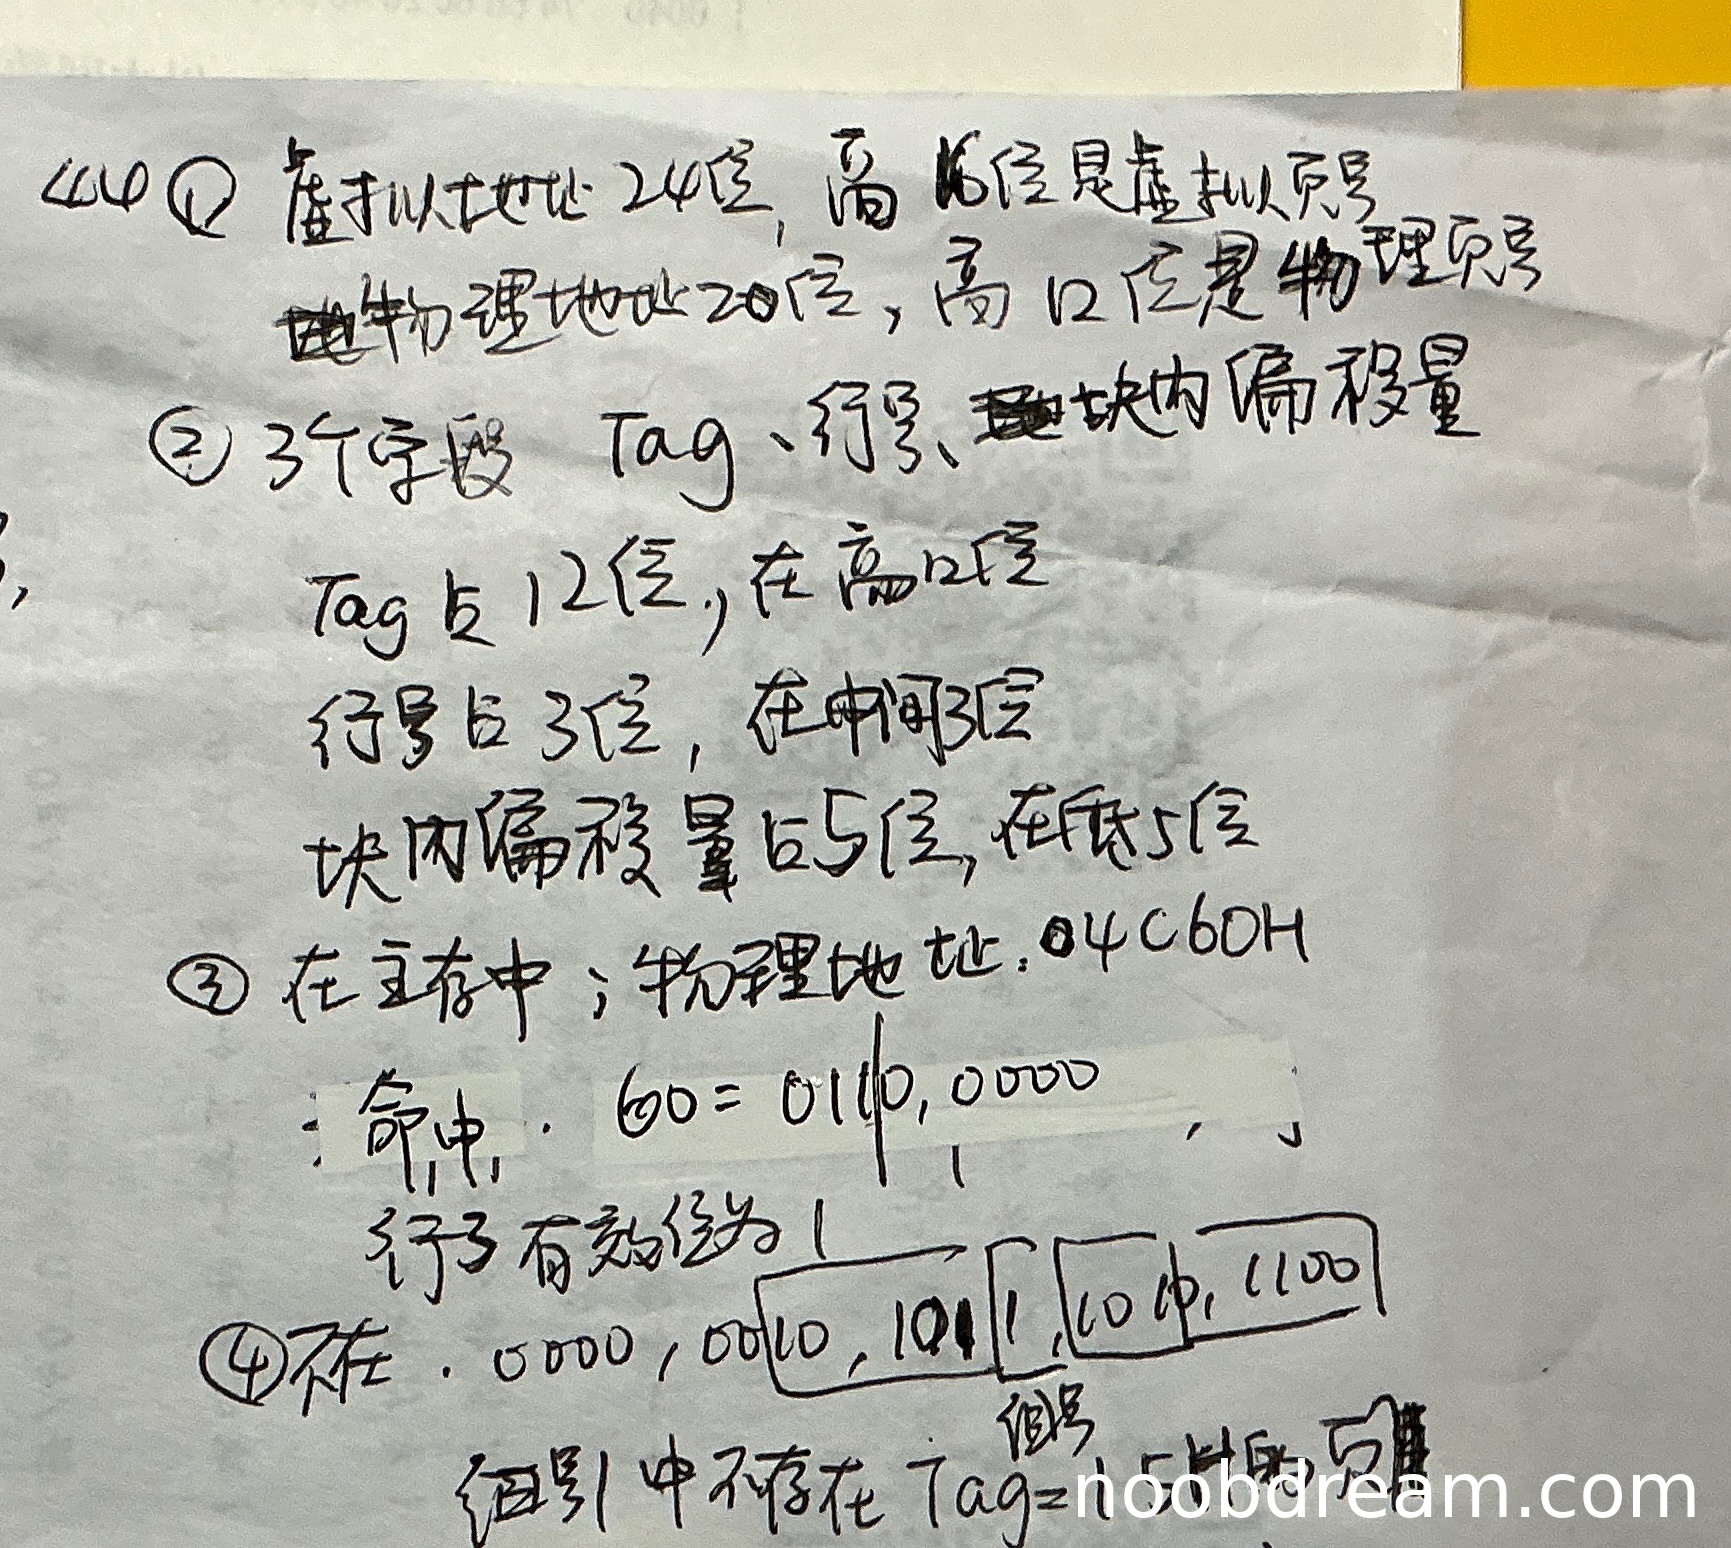 44 ① 虚拟地址24位, 高16位是虚拟页号
物理地址20位, 高12位是物理页号
② 3个字段 Tag、行号、块内偏移量
Tag占12位, 在高12位
行号占3位, 在中间3位
块内偏移量占5位, 在低5位
③ 在主存中; 物理地址: 04C60H
命中. 60 = 0110,0000
行3有效位为1
④ 不在. 0000,0010,1011,1010,1100
组号
组号1中不存在 Tag=
noobdream.com